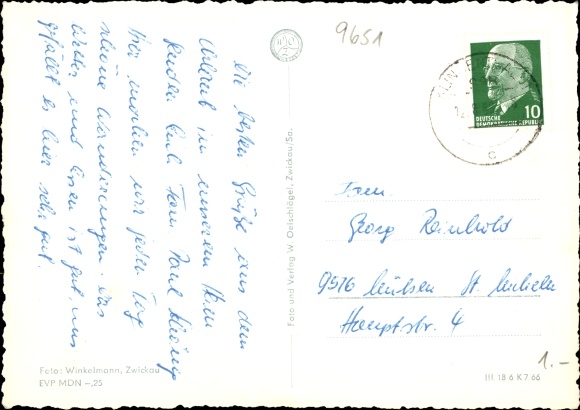 Die besten Grüße aus dem
Urlaub in unserem Heim
senden Euch Fam. Paul König
Hier machen wir jeden Tag
schöne Wanderungen. Das
Wetter und Essen ist gut, uns
gefällt es hier sehr gut.
Foto: Winkelmann, Zwickau
EVP MDN –,25
Foto und Verlag W. Oelschlägel, Zwickau/Sa.
9651
DEUTSCHE
DEMOKRATISCHE REPUBLIK
10
c
Fam.
Georg Reinhold
9516 Mülsen St. Micheln
Hauptstr. 4
1.–
III 18 6 K 7 66